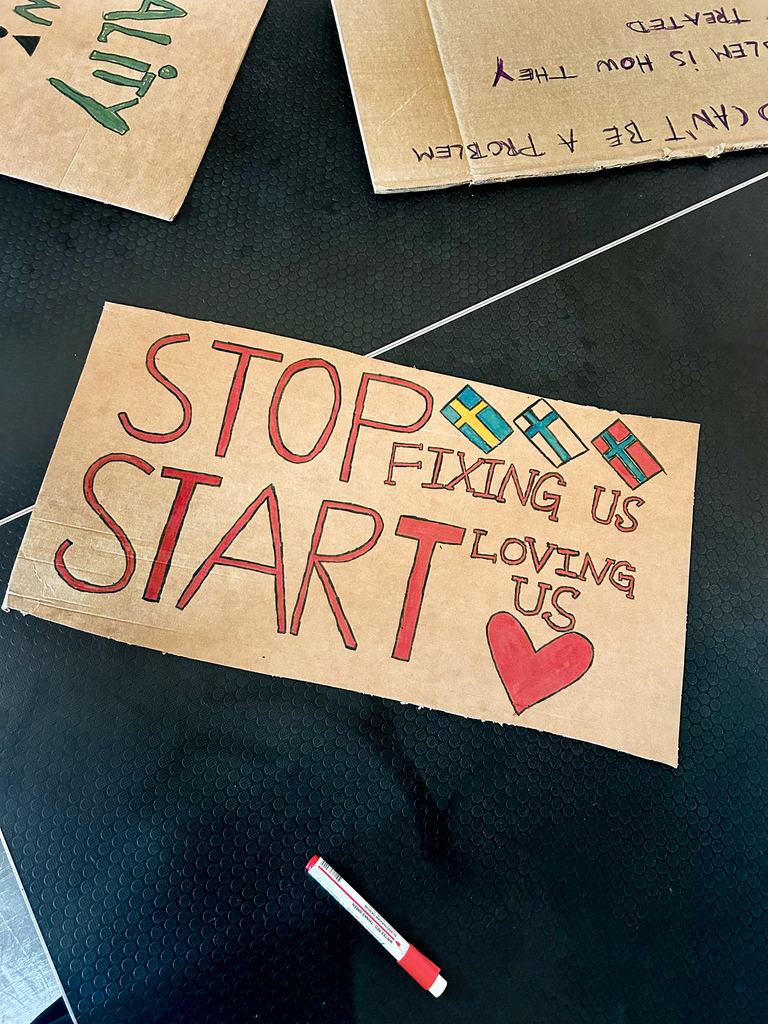 STOP
FIXING US
START
LOVING
US
ALITY
CAN'T BE A PROBLEM
IS HOW THEY
TREATED